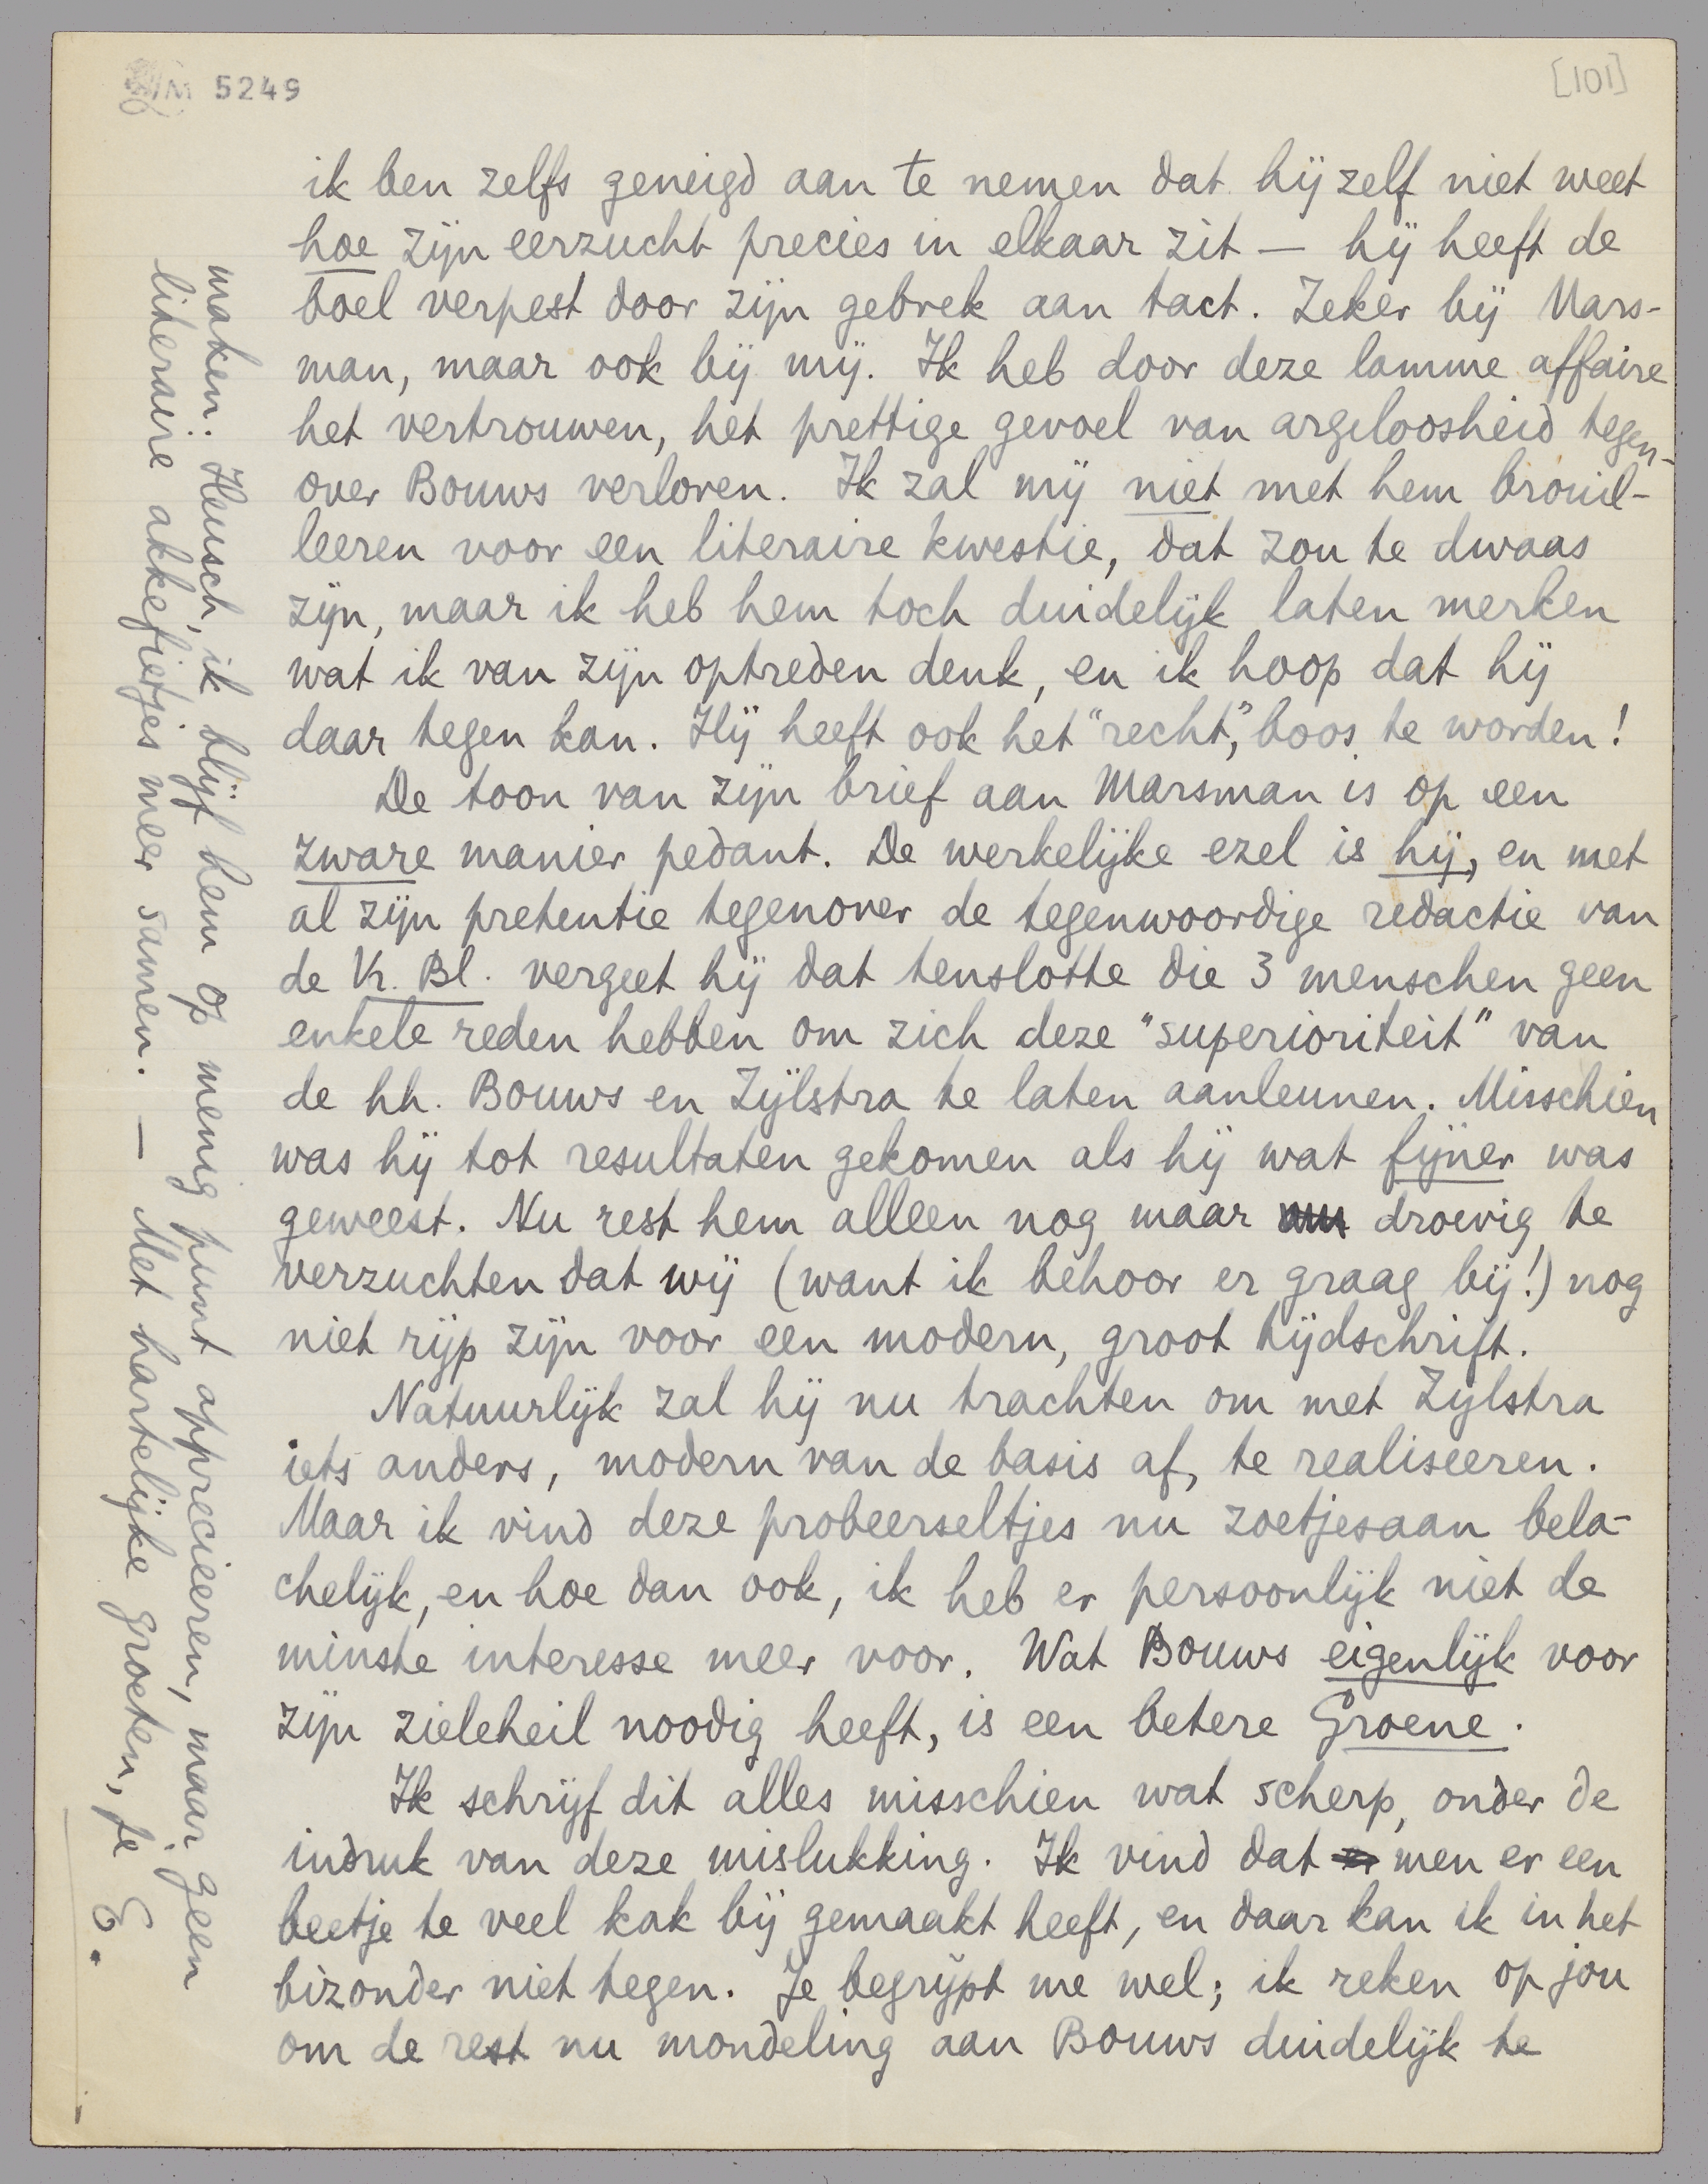 LM 5249
[101]
ik ben zelfs geneigd aan te nemen dat hij zelf niet weet
hoe zijn eerzucht precies in elkaar zit — hij heeft de
boel verpest door zijn gebrek aan tact. Zeker bij Mars-
man, maar ook bij mij. Ik heb door deze lamme affaire
het vertrouwen, het prettige gevoel van argeloosheid tegen-
over Bouws verloren. Ik zal mij niet met hem brouil-
leeren voor een literaire kwestie, dat zou te dwaas
zijn, maar ik heb hem toch duidelijk laten merken
wat ik van zijn optreden denk, en ik hoop dat hij
daar tegen kan. Hij heeft ook het "recht", boos te worden!
De toon van zijn brief aan Marsman is op een
zware manier pedant. De werkelijke ezel is hij, en met
al zijn pretentie tegenover de tegenwoordige redactie van
de Vr. Bl. vergeet hij dat tenslotte die 3 menschen geen
enkele reden hebben om zich deze "superioriteit" van
de hh. Bouws en Zijlstra te laten aanleunen. Misschien
was hij tot resultaten gekomen als hij wat fijner was
geweest. Nu rest hem alleen nog maar droevig te
verzuchten dat wij (want ik behoor er graag bij!) nog
niet rijp zijn voor een modern, groot tijdschrift.
Natuurlijk zal hij nu trachten om met Zijlstra
iets anders, modern van de basis af, te realiseeren.
Maar ik vind deze probeerseltjes nu zoetjesaan bela-
chelijk, en hoe dan ook, ik heb er persoonlijk niet de
minste interesse meer voor. Wat Bouws eigenlijk voor
zijn zieleheil noodig heeft, is een betere Groene.
Ik schrijf dit alles misschien wat scherp, onder de
indruk van deze mislukking. Ik vind dat men er een
beetje te veel kak bij gemaakt heeft, en daar kan ik in het
bizonder niet tegen. Je begrijpt me wel; ik reken op jou
om de rest nu mondeling aan Bouws duidelijk te
maken. Heusch, ik blijf hem op menig punt apprecieeren, maar geen
literaire akkefietjes meer samen. — Met hartelijke groeten, je E.